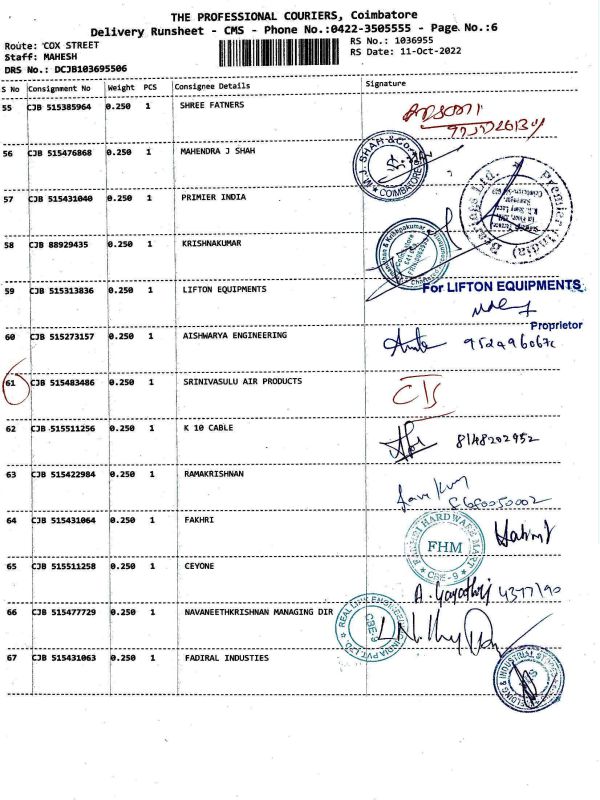 THE PROFESSIONAL COURIERS, Coimbatore
Delivery Runsheet - CMS - Phone No.:0422-3505555 - Page No.:6
Route: COX STREET RS No.: 1036955
Staff: MAHESH RS Date: 11-Oct-2022
DRS No.: DCJB103695506
S No Consignment No Weight PCS Consignee Details Signature
55 CJB 515385964 0.250 1 SHREE FATNERS
56 CJB 515476868 0.250 1 MAHENDRA J SHAH
M.J. SHAH & Co. COIMBATORE
57 CJB 515431040 0.250 1 PRIMIER INDIA
Premier (India) Bearings Ltd.
58 CJB 88929435 0.250 1 KRISHNAKUMAR
Coimbatore
59 CJB 515313836 0.250 1 LIFTON EQUIPMENTS
For LIFTON EQUIPMENTS
Proprietor
60 CJB 515273157 0.250 1 AISHWARYA ENGINEERING
61 CJB 515483486 0.250 1 SRINIVASULU AIR PRODUCTS
C/S
62 CJB 515511256 0.250 1 K 10 CABLE
8148202952
63 CJB 515422984 0.250 1 RAMAKRISHNAN
64 CJB 515431064 0.250 1 FAKHRI
FAKHRI HARDWARE MART
FHM
CBE - 9
65 CJB 515511258 0.250 1 CEYONE
A. Gayathri
66 CJB 515477729 0.250 1 NAVANEETHKRISHNAN MANAGING DIR
CBE-9
67 CJB 515431063 0.250 1 FADIRAL INDUSTIES